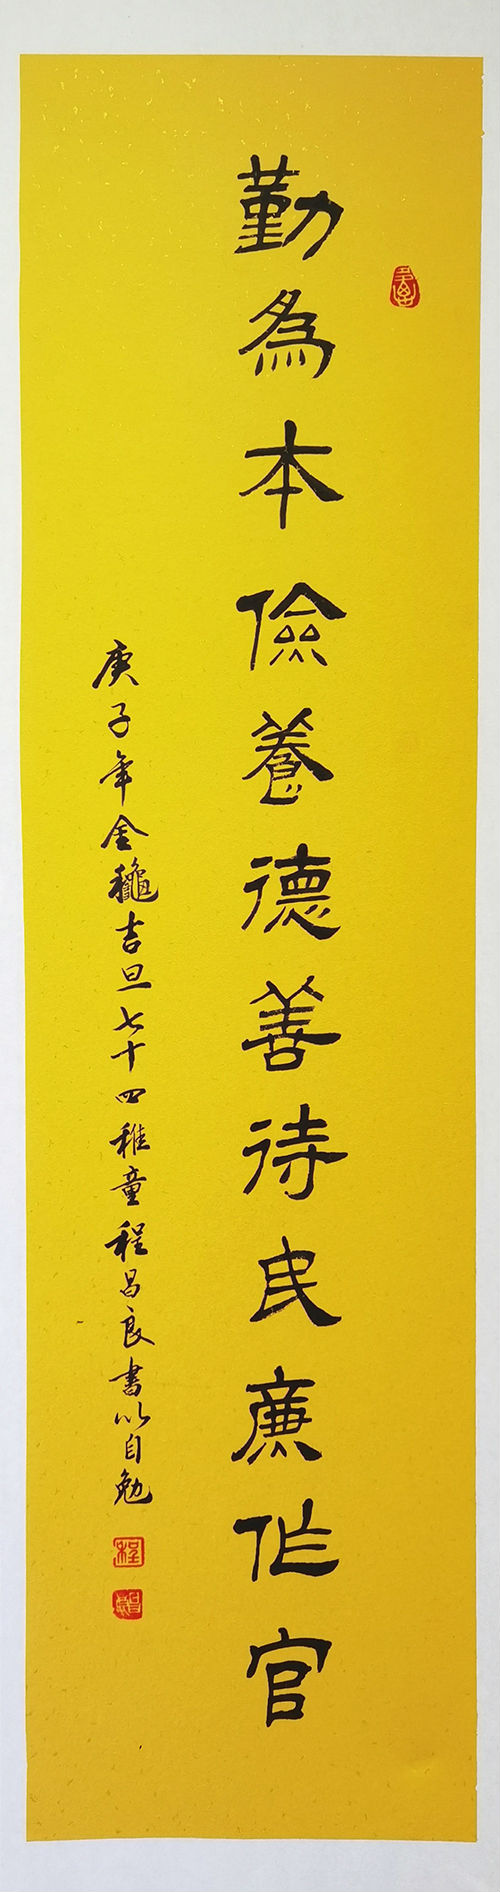 勤為本儉養德善待民廉作官
庚子年金龝吉旦七十四稚童程昌良書以自勉
程